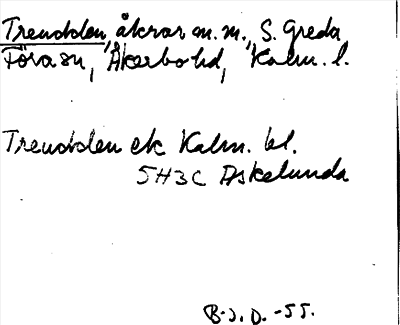 Treudden, åkrar m.m., S. Greda,
Föra sn, Åkerbo hd, Kalm. l.
Treudden ek Kalm. bl.
5H3C Äskelunda
B.J.D. -55.